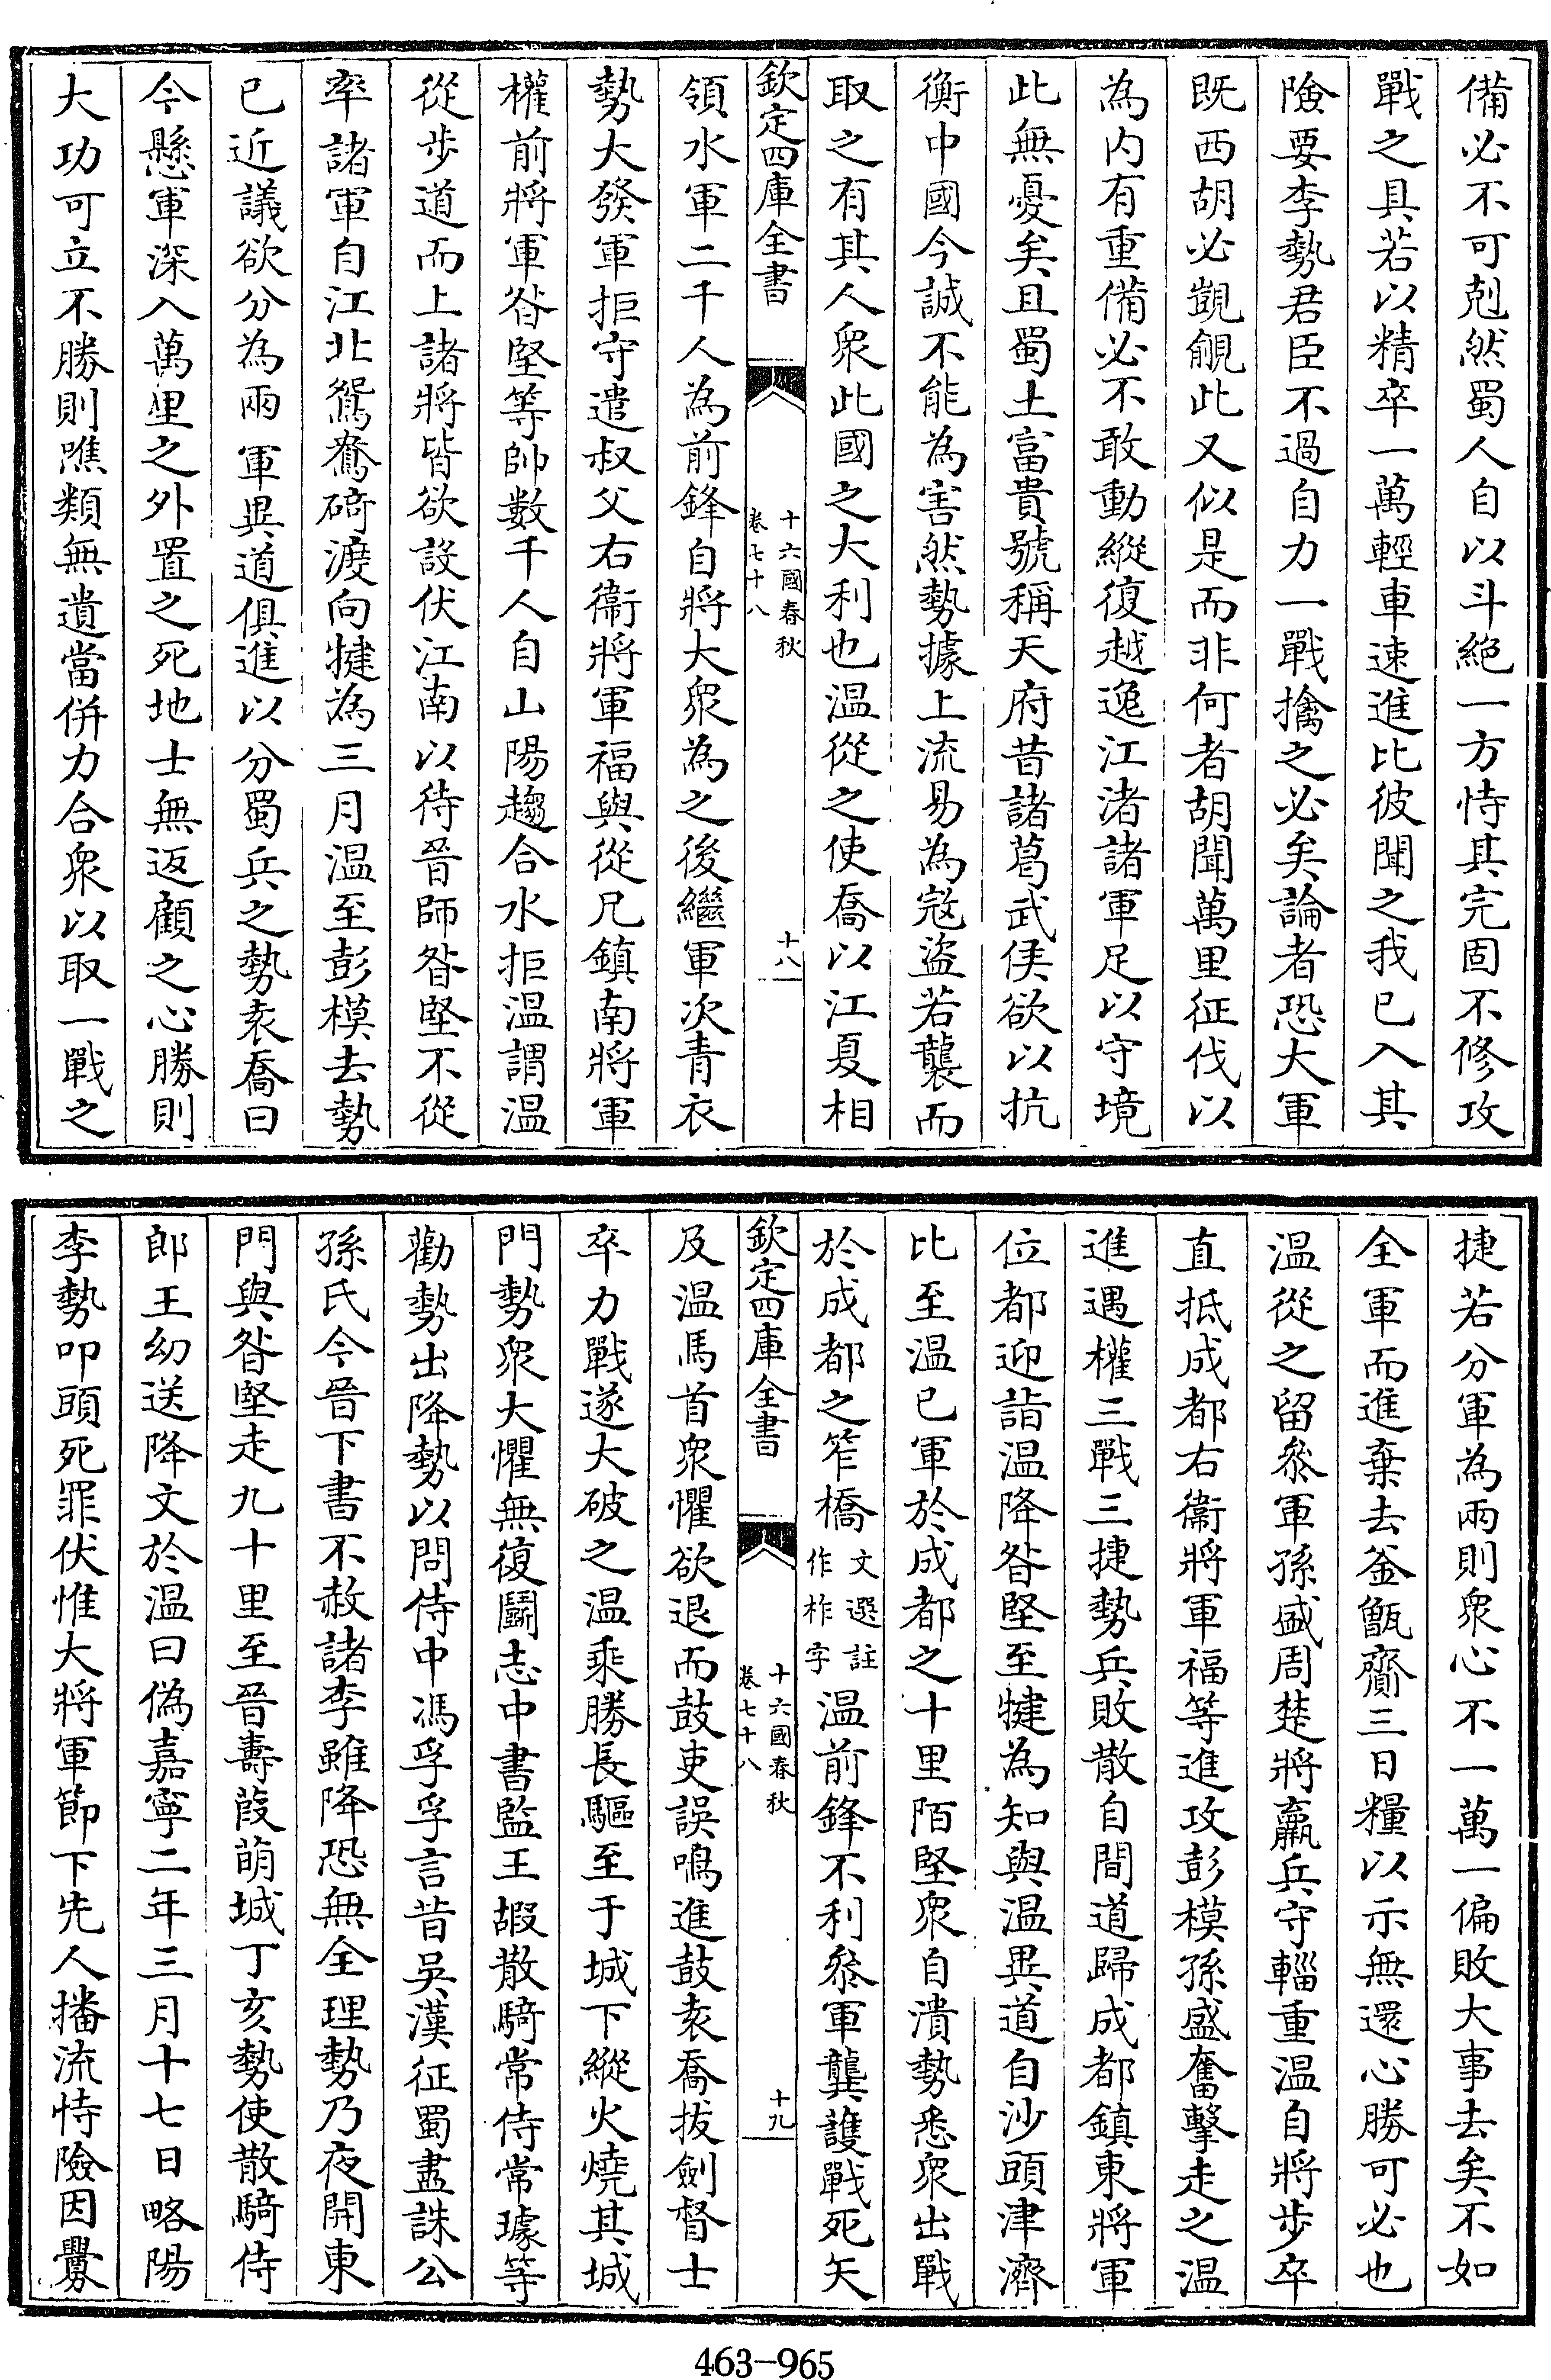 備必不可剋然蜀人自以斗絕一方恃其完固不修攻
戰之具若以精卒一萬輕車速進比彼聞之我已入其
險要李勢君臣不過自力一戰擒之必矣論者恐大軍
既西胡必覬覦此又似是而非何者胡聞萬里征伐以
為内有重備必不敢動縱復越逸江渚諸軍足以守境
此無憂矣且蜀土富貴號稱天府昔諸葛武侯欲以抗
衡中國今誠不能為害然勢據上流易為宼盜若襲而
取之有其人衆此國之大利也温從之使喬以江夏相
欽定四庫全書
十六國春秋
卷七十八
十八
領水軍二千人為前鋒自將大衆為之後繼軍次青衣
勢大發軍拒守遣叔父右衞將軍福與從兄鎮南將軍
權前將軍昝堅等帥數千人自山陽趨合水拒温謂温
從步道而上諸將皆欲設伏江南以待晉師昝堅不從
率諸軍自江北鴛鴦碕渡向犍為三月温至彭模去勢
已近議欲分為兩軍異道俱進以分蜀兵之勢袁喬曰
今懸軍深入萬里之外置之死地士無返顧之心勝則
大功可立不勝則噍類無遺當併力合衆以取一戰之
捷若分軍為兩則衆心不一萬一偏敗大事去矣不如
全軍而進棄去釜甑齎三日糧以示無還心勝可必也
温從之留叅軍孫盛周楚將羸兵守輜重温自將步卒
直抵成都右衞將軍福等進攻彭模孫盛奮擊走之温
進遇權三戰三捷勢兵敗散自間道歸成都鎮東將軍
位都迎詣温降昝堅至犍為知與温異道自沙頭津濟
比至温已軍於成都之十里陌堅衆自潰勢悉衆出戰
於成都之笮橋文選註作柞字温前鋒不利叅軍龔護戰死矢
欽定四庫全書
十六國春秋
卷七十八
十九
及温馬首衆懼欲退而鼓吏誤鳴進鼓袁喬拔劍督士
卒力戰遂大破之温乘勝長驅至于城下縱火燒其城
門勢衆大懼無復鬬志中書監王嘏散騎常侍常璩等
勸勢出降勢以問侍中馮孚孚言昔吳漢征蜀盡誅公
孫氏今晉下書不赦諸李雖降恐無全理勢乃夜開東
門與昝堅走九十里至晉壽葭萌城丁亥勢使散騎侍
郎王幼送降文於温曰偽嘉寧二年三月十七日略陽
李勢叩頭死罪伏惟大將軍節下先人播流恃險因釁
463-965